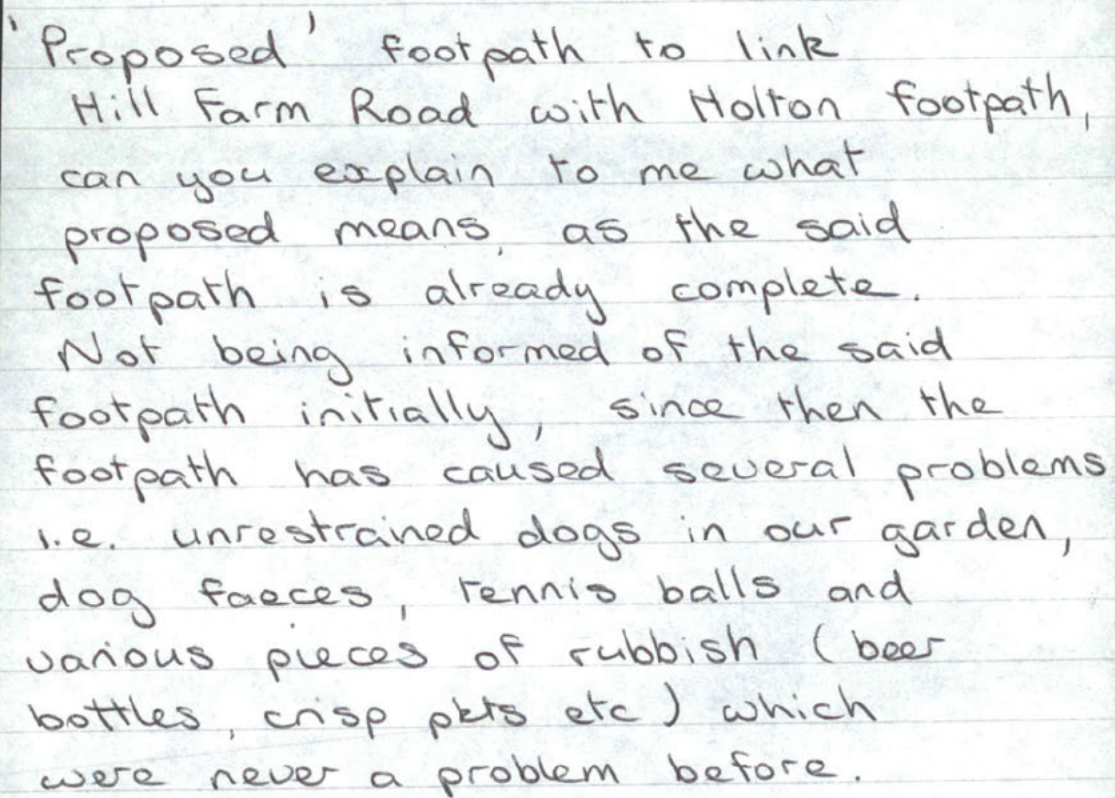 'Proposed' footpath to link
Hill Farm Road with Holton footpath,
can you explain to me what
proposed means, as the said
footpath is already complete.
Not being informed of the said
footpath initially, since then the
footpath has caused several problems
i.e. unrestrained dogs in our garden,
dog faeces, tennis balls and
various pieces of rubbish (beer
bottles, crisp pkts etc) which
were never a problem before.